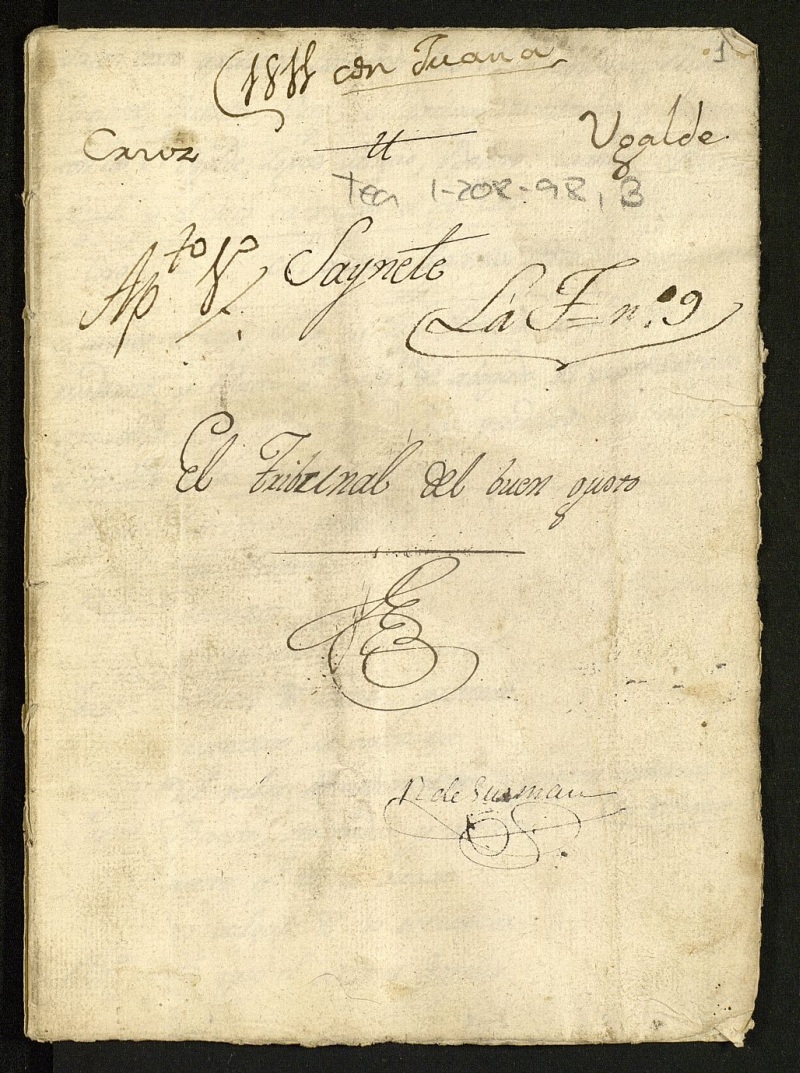 1
1811 con Juana
Cruz tt Ugalde
Tea 1-208-98, B
Ap.to 1º Saynete
La F= n.º 9
El Tribunal del buen gusto
de Gusman